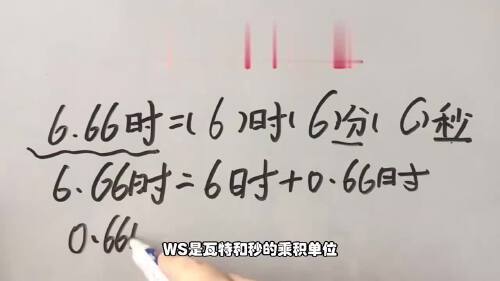 6.66时=(6)时(6)分(6)秒
6.66时=6时+0.66时
0.66
WS是瓦特和秒的乘积单位